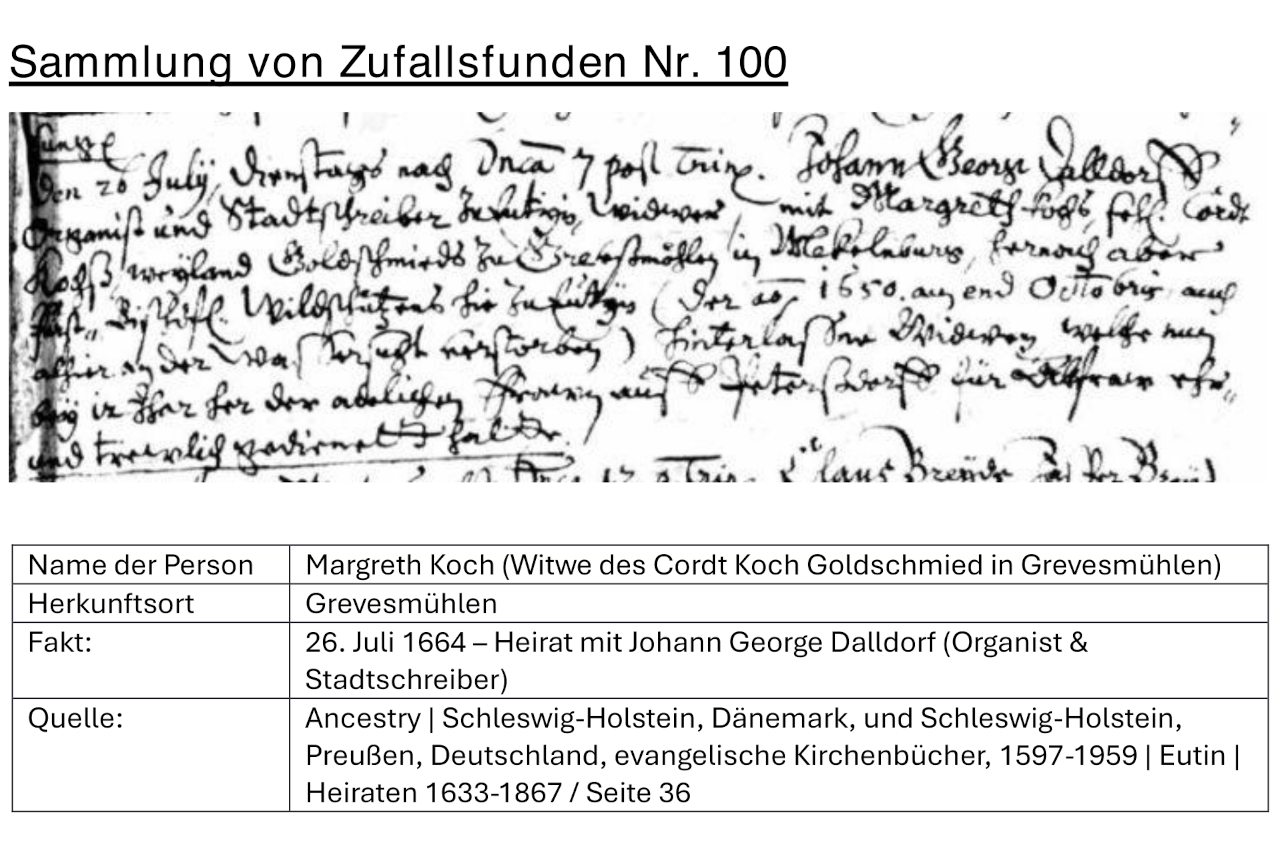 Sammlung von Zufallsfunden Nr. 100
den 26 July, Dienstags nach Dnca 7 post Trin. Johann Georg Dalldorff
Organist und Stadtschreiber zu Eutin, Widwer, mit Margreth Kochs, sehl. Cordt
Kochß, weyland Goldschmieds zu in Mekelnburg, hernach aber
Bischöfl. Wildschützens hie zu Eutin (der ao 1650. am end Octobris, auch
alhier an der Wassersucht verstorben) hinterlaßene Widwen, welche nun
in Jhar her der adelichen Frauen auff Petersdorff für
und trewlich gedienet hatte.
Name der Person Margreth Koch (Witwe des Cordt Koch Goldschmied in Grevesmühlen)
Herkunftsort Grevesmühlen
Fakt: 26. Juli 1664 – Heirat mit Johann George Dalldorf (Organist &
Stadtschreiber)
Quelle: Ancestry | Schleswig-Holstein, Dänemark, und Schleswig-Holstein,
Preußen, Deutschland, evangelische Kirchenbücher, 1597-1959 | Eutin |
Heiraten 1633-1867 / Seite 36